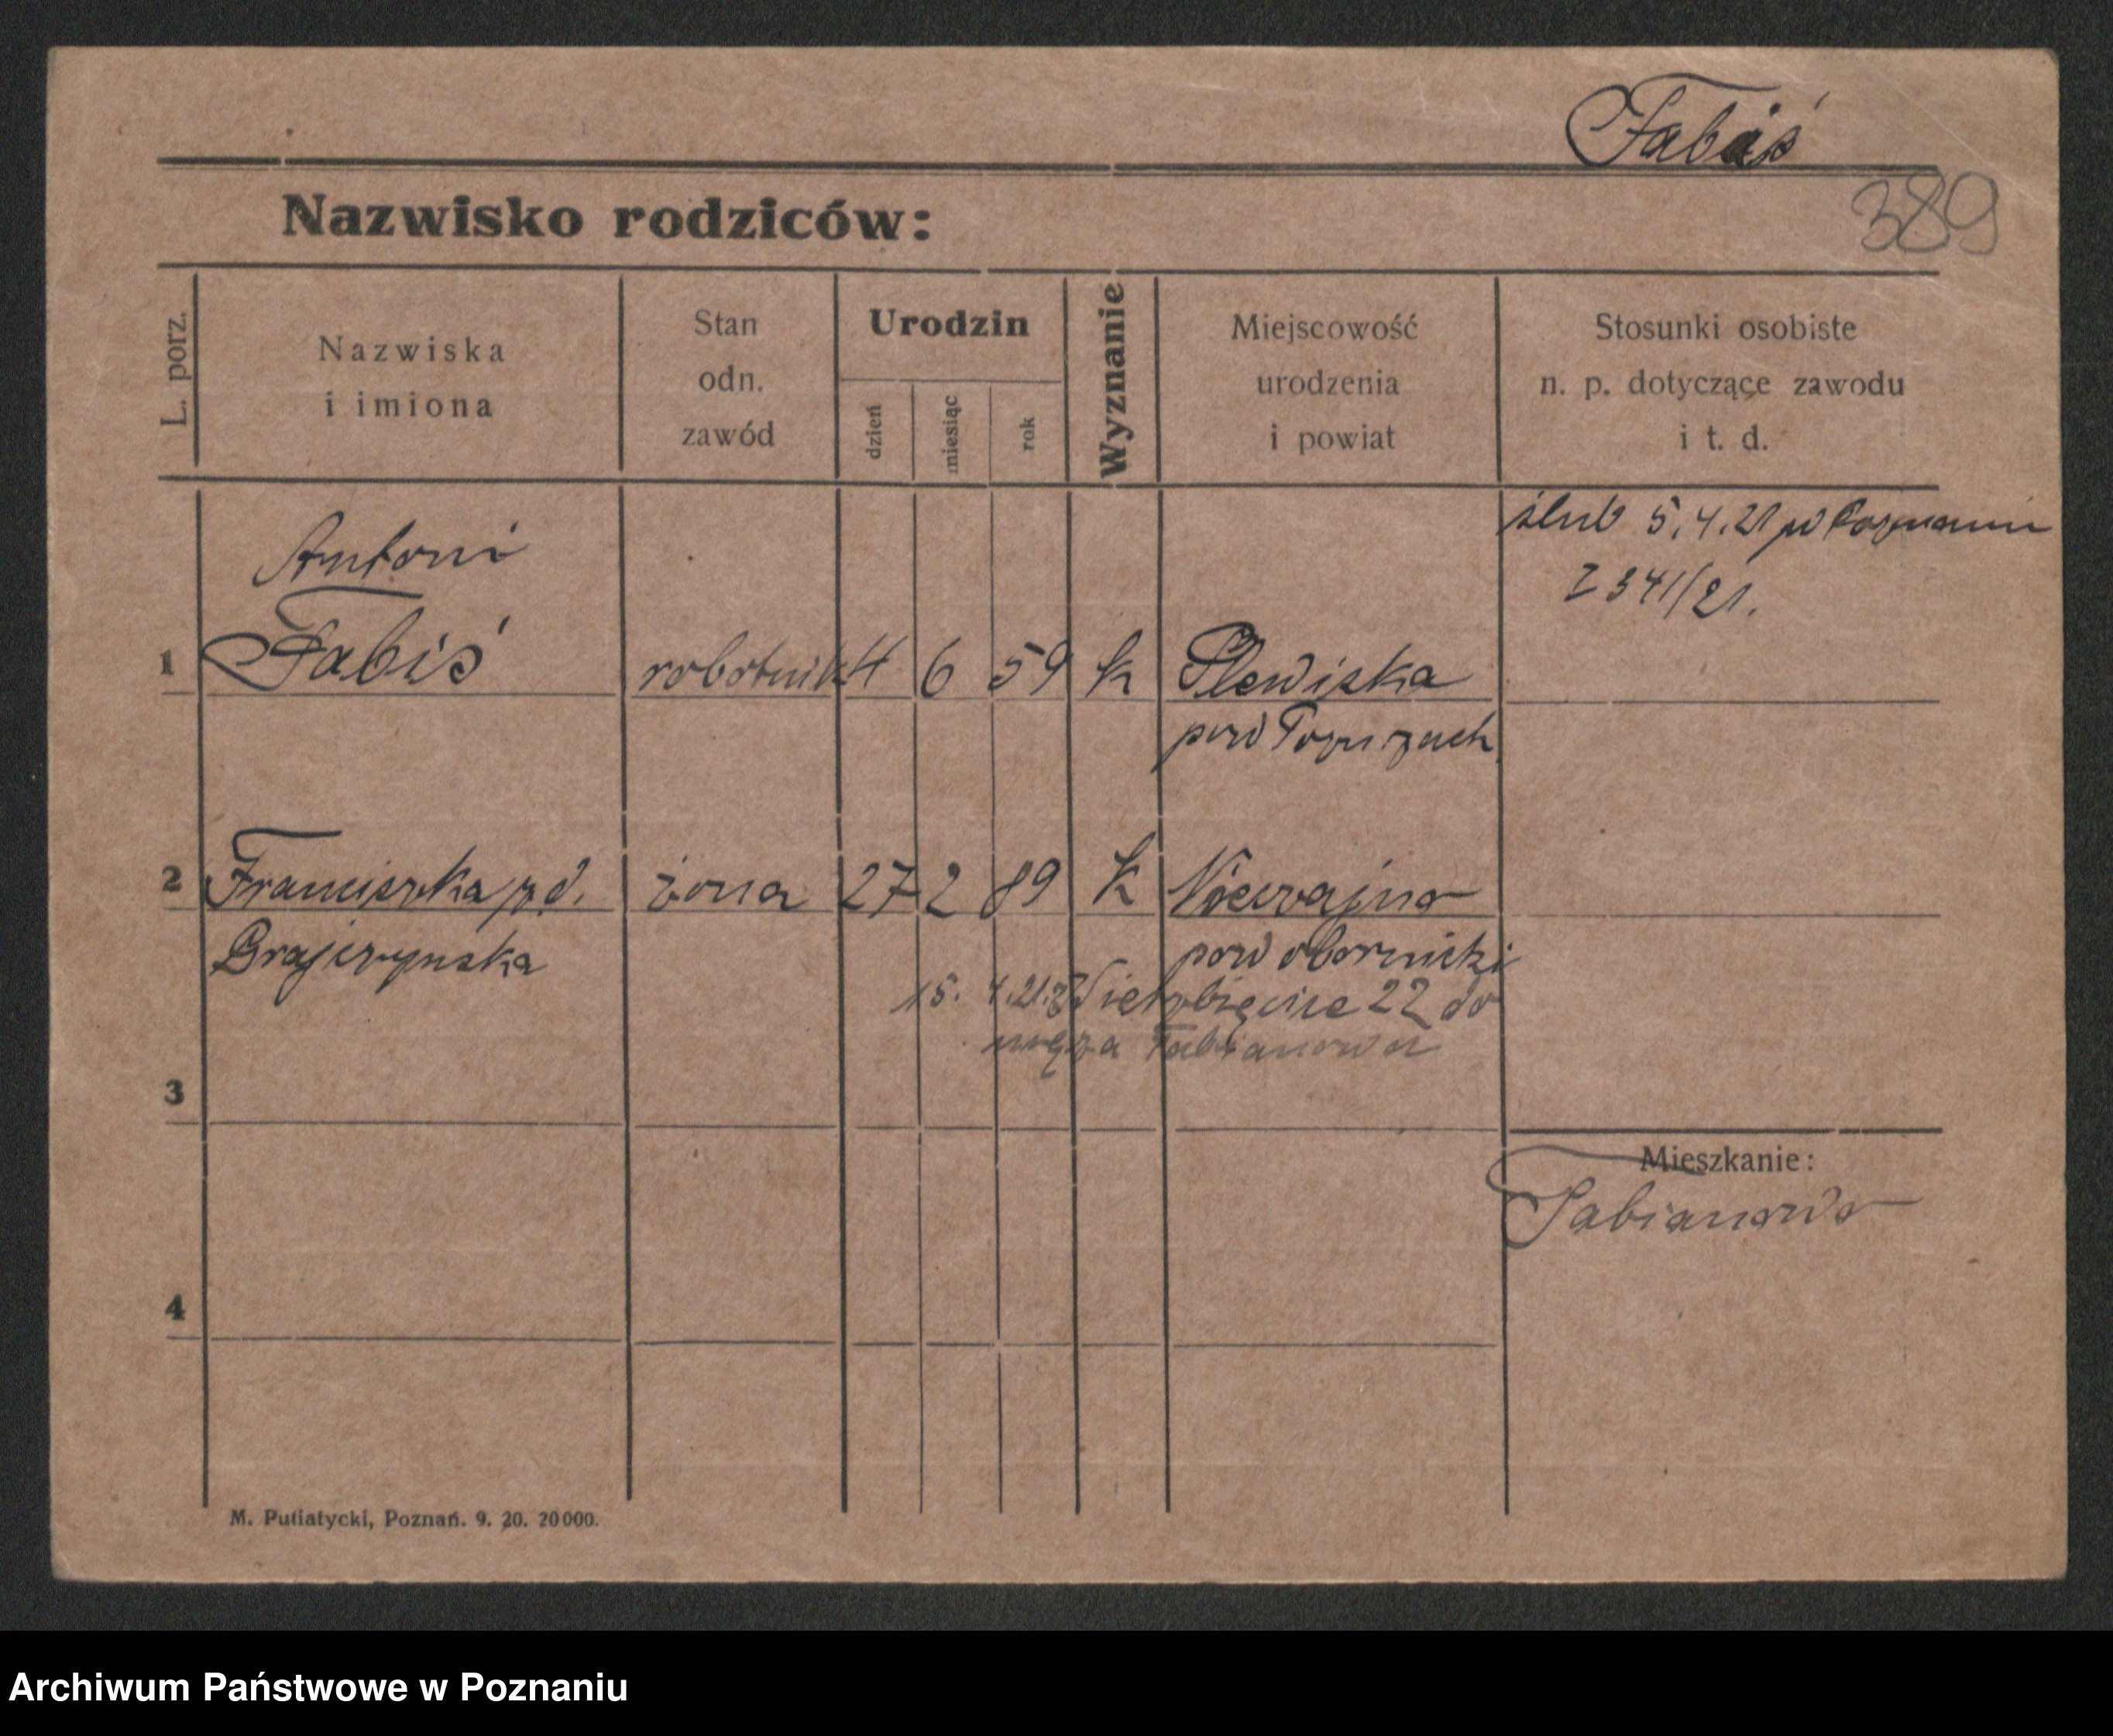 Fabiś
389
Nazwisko rodziców:
L. porz.
Nazwiska
i imiona
Stan
odn.
zawód
Urodzin
dzień
miesiąc
rok
Wyznanie
Miejscowość
urodzenia
i powiat
Stosunki osobiste
n. p. dotyczące zawodu
i t. d.
ślub 5.4.21 w Poznaniu
Z 341/21.
Antoni
1 Fabiś robotnik 4 6 59 k Plewiska
pow
2 Franciszka z d. żona 27 2 89 k
Brajczynska pow obornicki
15. 4.21. 22 do
męża Fabianowa
3
Mieszkanie:
Fabianowo
4
M. Putiatycki, Poznań. 9. 20. 20000.
Archiwum Państwowe w Poznaniu